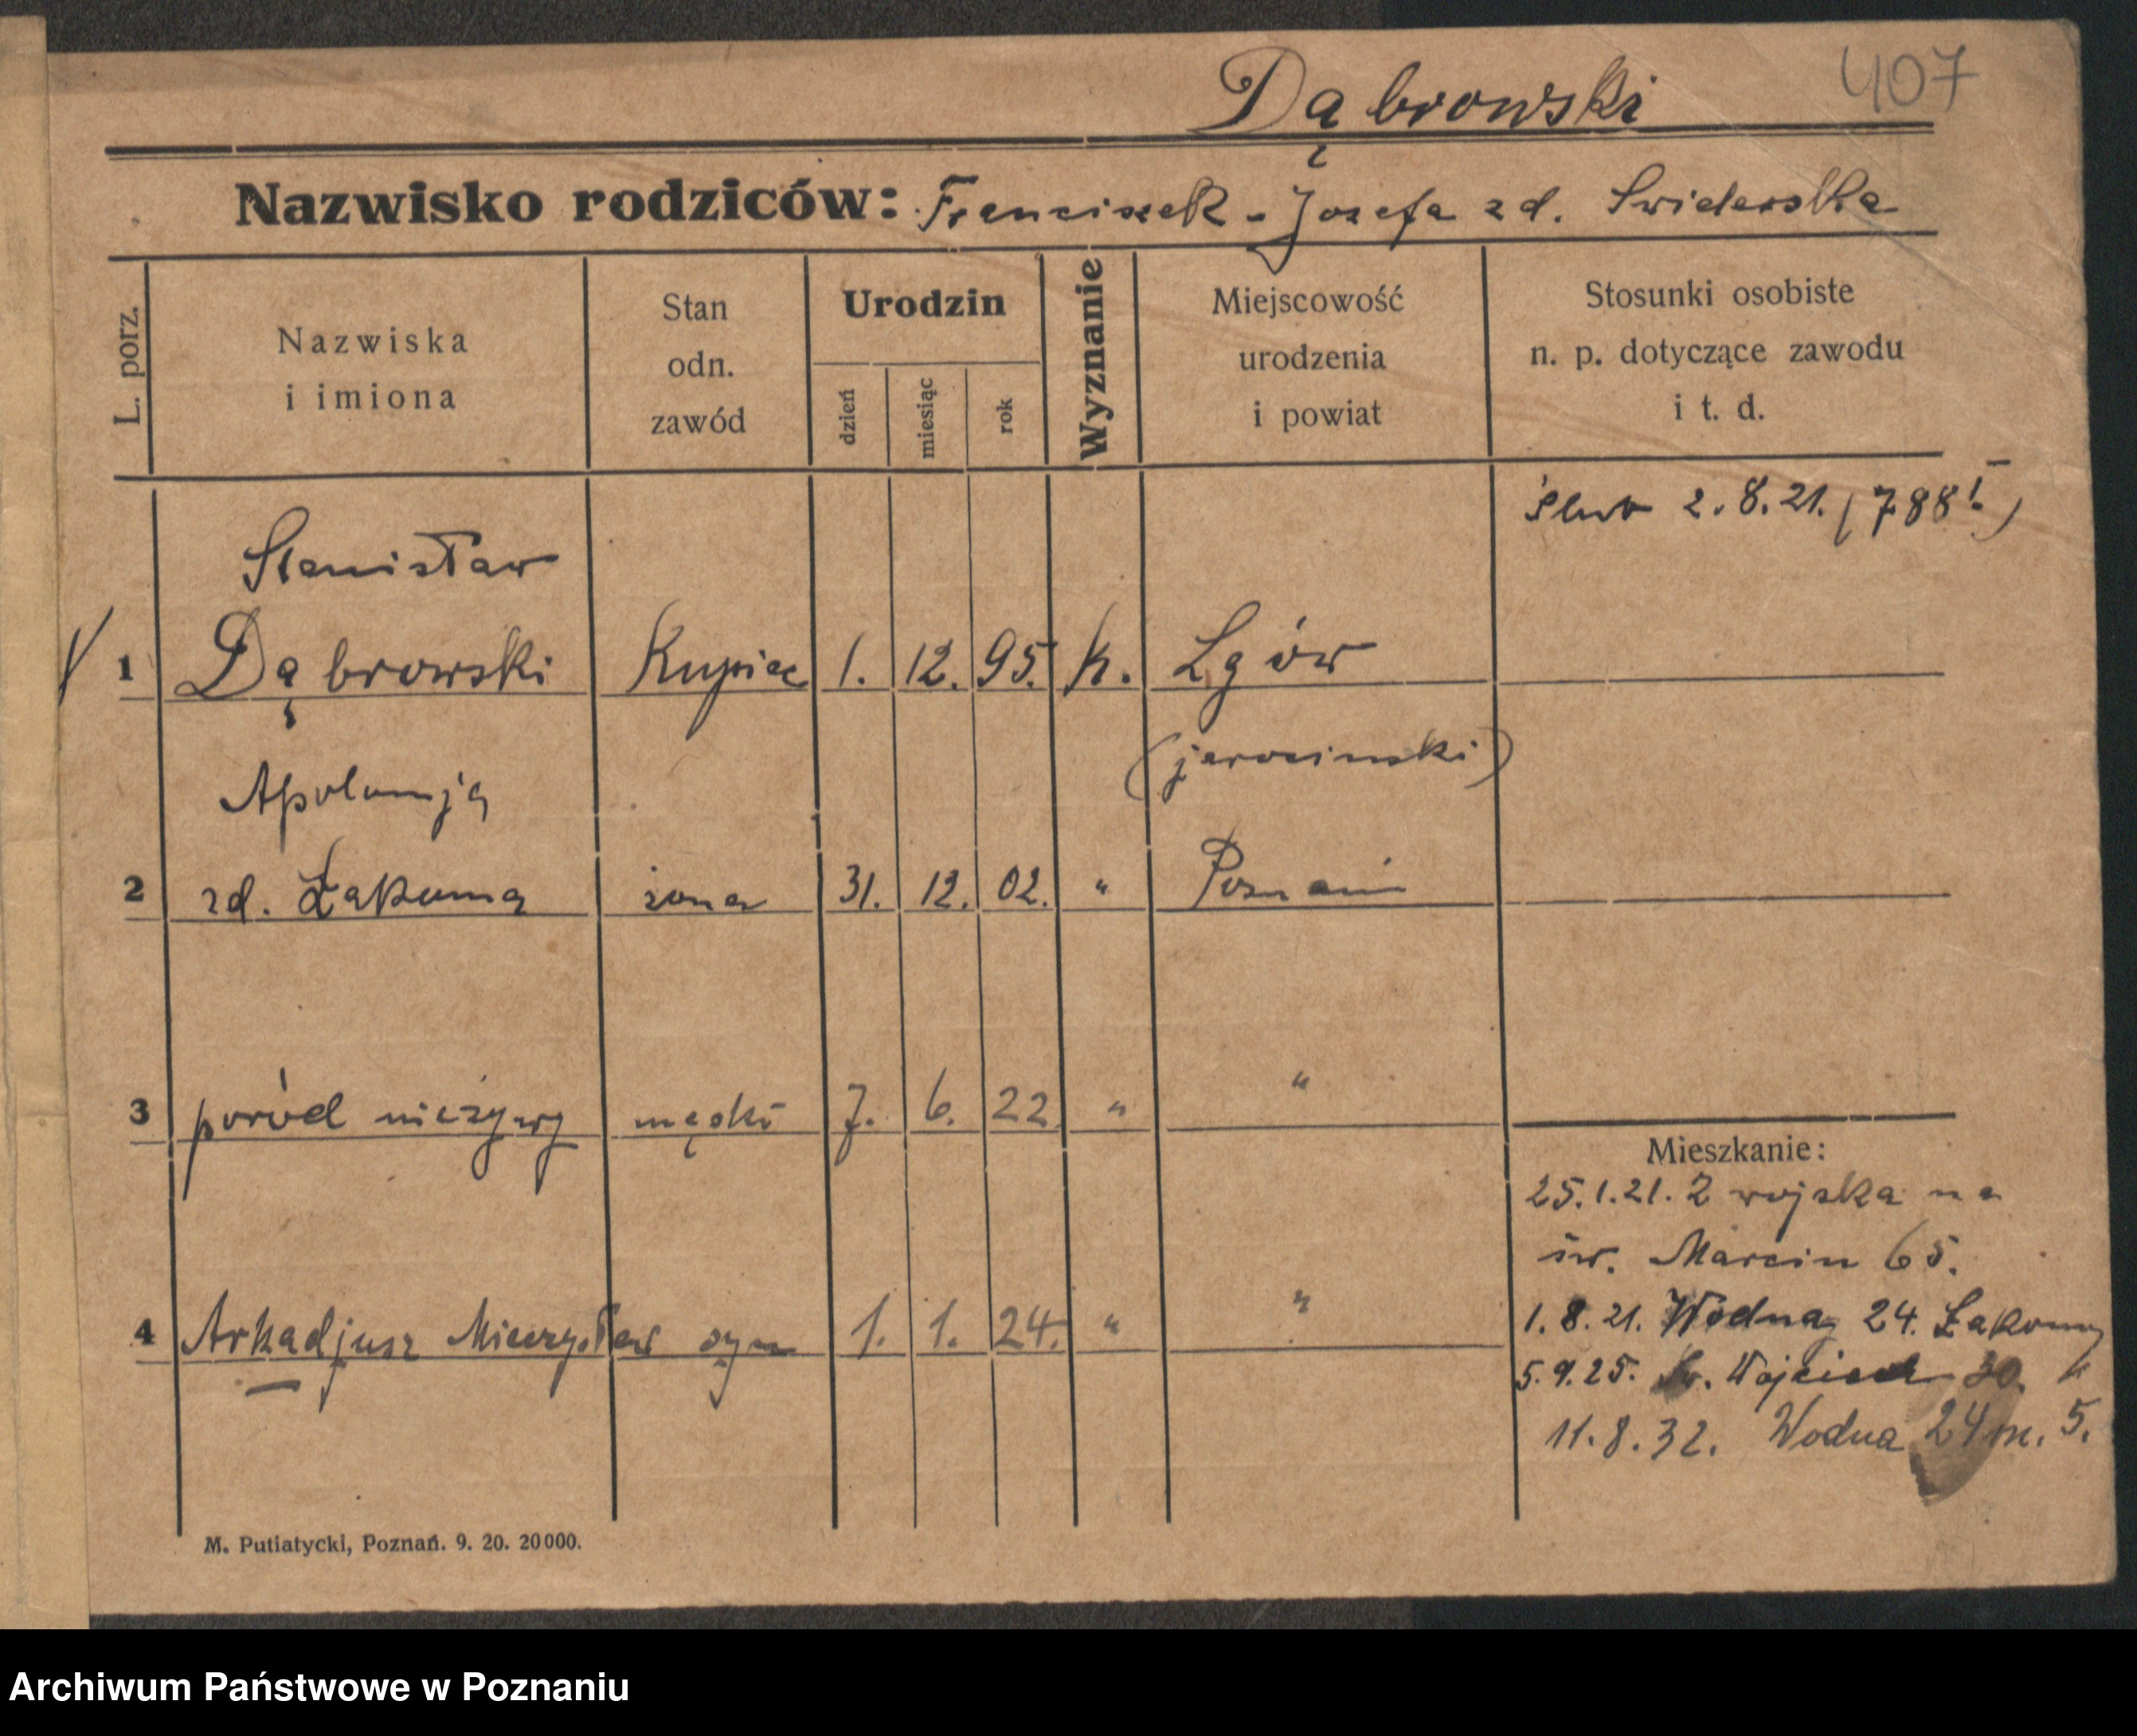 Dąbrowski
407
Nazwisko rodziców: Franciszek - Jozefa zd. Swiderska
L. porz.
Nazwiska
i imiona
Stan
odn.
zawód
Urodzin
dzień
miesiąc
rok
Wyznanie
Miejscowość
urodzenia
i powiat
Stosunki osobiste
n. p. dotyczące zawodu
i t. d.
ślub 2.8.21. (788 I)
Stanisław
1 Dąbrowski Kupiec 1. 12. 95. k. Lgów
(jarocinski)
Apolonja
2 zd. żona 31. 12. 02. " Poznań
3 poród nieżywy męski 7. 6. 22 " "
Mieszkanie:
25.1.21. Z wojska na
św. Marcin 65.
4 Arkadjusz Mieczysław syn 1. 1. 24. " "
1.8.21. Wodna 24.
5.9.25. św. Wojciech 30.
11.8.32. Wodna 24 m. 5.
M. Putiatycki, Poznań. 9. 20. 20000.
Archiwum Państwowe w Poznaniu